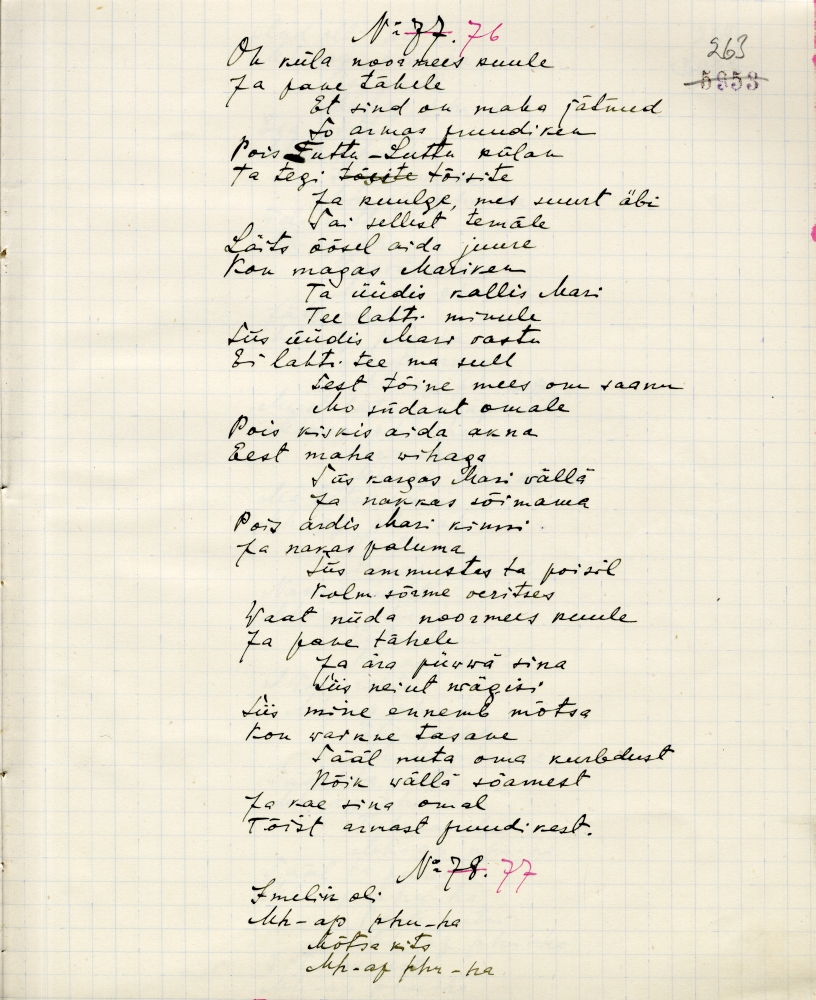 № 77. 76
263
5353
Oh küla noormees kuule
Ja pane tähele
Et sind on maha jätnud
So armas pruudiken
Pois Tuttu-Luttu külan
Ta tegi tõsite tõisite
Ja kuulge, mes suurt äbi
Sai sellest temäle
Läits öösel aida juure
Kon magas Mariken
Ta üüdis kallis Mari
Tee lahti minule
Siis üüdis Mari vastu
Ei lahti tee ma sull
Sest tõine mees om saanu
Mo südant omale
Pois kiskis aida akna
Eest maha wihaga
Siis kargas Mari wällä
Ja nakkas sõimama
Pois ardis Mari kinni.
Ja nakas paluma
Siis ammustes ta poisil
Kolm sõrme veritses
Waat nüda noormees kuule
Ja pane tähele
Ja ära püwwä sina
Siis neiut wägisi
Siis mine ennemb mõtsa
Kon waikne tasane
Sääl nuta oma kurbdust
Kõik wällä söamest
Ja kae sina omal
Tõist armast pruudikest.
№ 78. 77
Imelik oli
Mh-ap phu-ha
Mõtsa kits
Mh-ap phu-ha